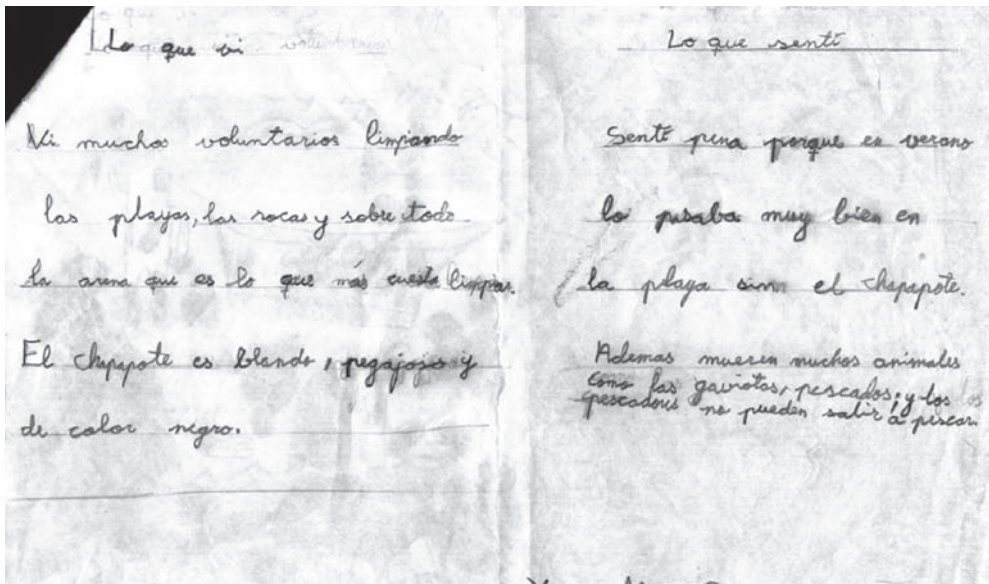 Lo que vi
Vi muchos voluntarios limpiando
las playas, las rocas y sobre todo
la arena que es lo que más cuesta limpiar.
El chapapote es blando, pegajojo y
de color negro.
Lo que sentí
Sentí pena porque en verano
lo pasaba muy bien en
la playa sin el chapapote.
Ademas mueren muchos animales
como las gaviotas, pescados; y los
pescadores no pueden salir a pescar.